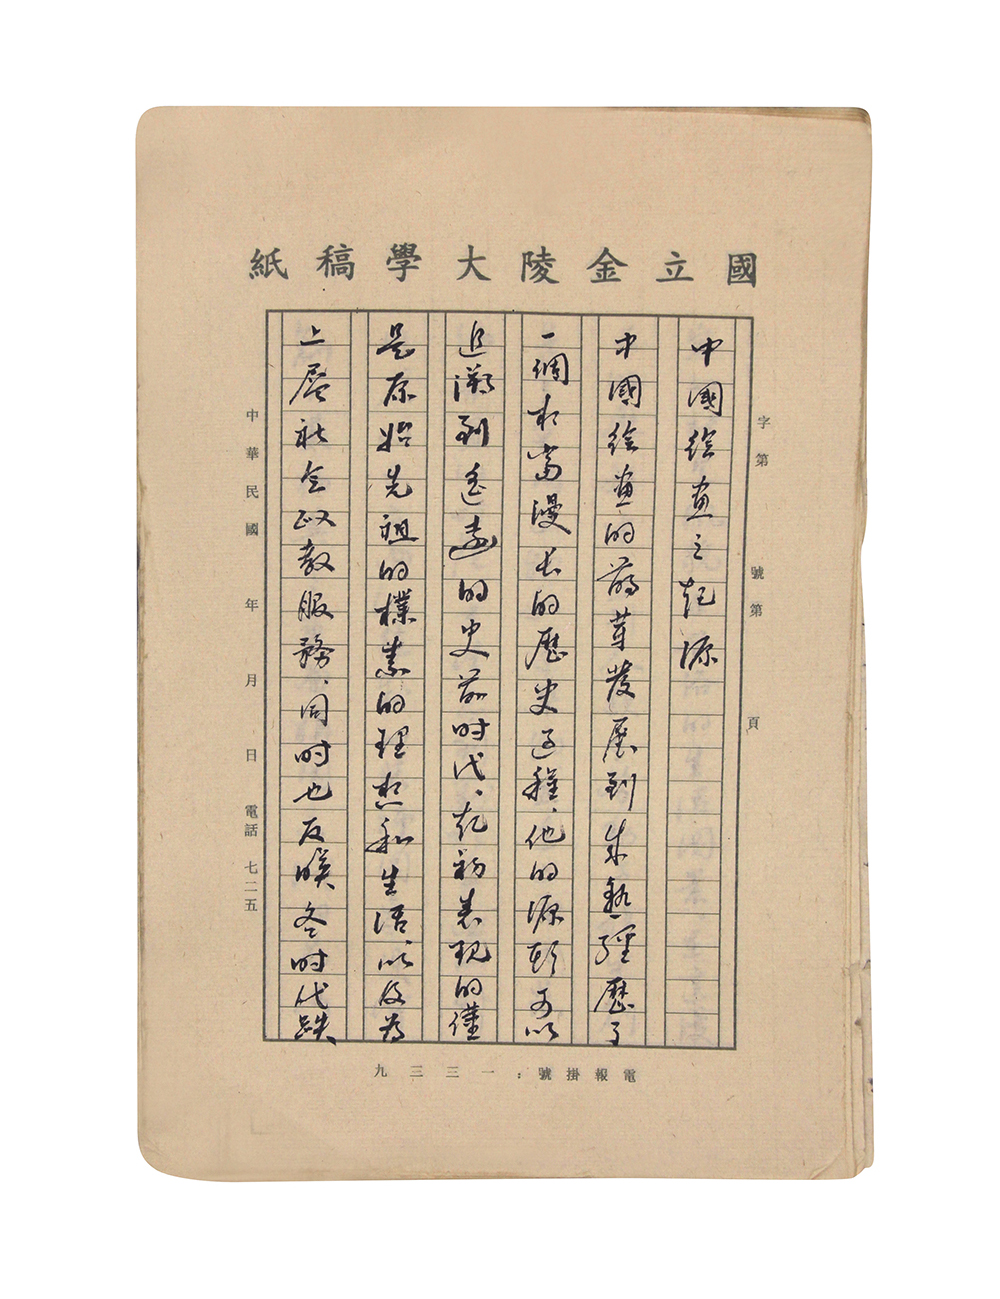 國立金陵大學稿紙
字第　號第　頁
中國绘畫之起源
中國绘畫的萌芽發展到成熟經歷了
一個相當漫长的歷史过程、他的源頭可以
追溯到遙遠的史前时代、起初表现的僅
是原始先祖的樸素的理想和生活、以及为
上层社会政教服務、同时也反映各时代
中華民國　年　月　日　電話 七二五
電報掛號：一三三九